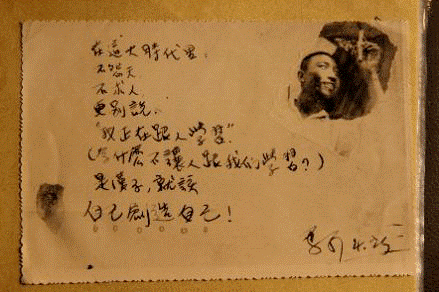 在這大時代里，
不怨天，
不求人，
更別說，
“我正在跟人學習”
(為什麼不讓人跟我們學習？)
是漢子，就該
自己創造自己！